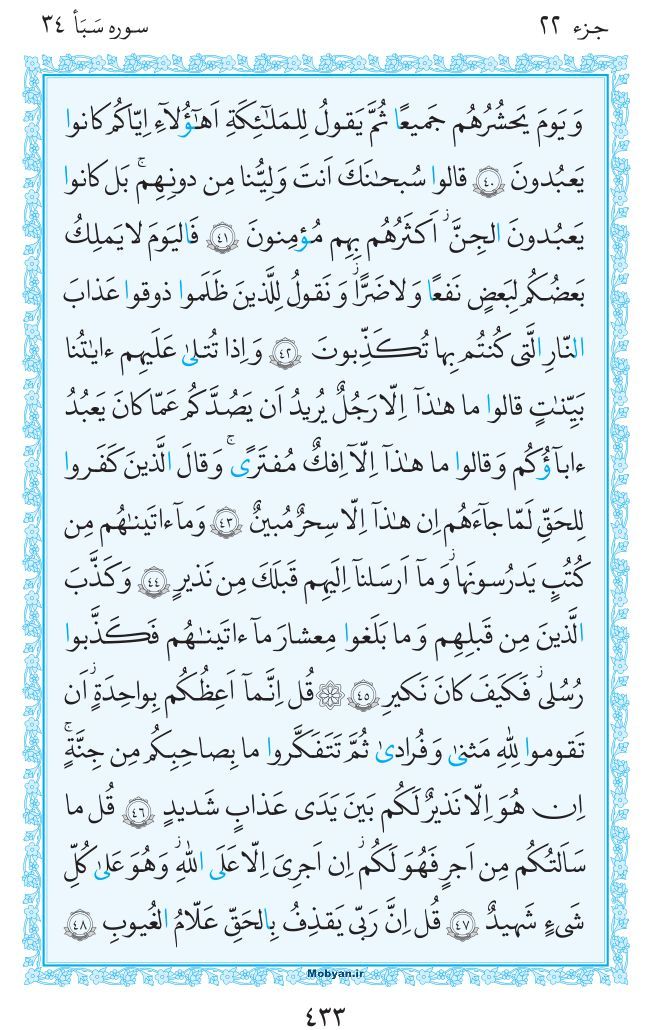 جزء ٢٢
سوره سَبَأ ٣٤
وَ يَومَ يَحشُرُهُم جَميعًا ثُمَّ يَقولُ لِلمَلٰئِكَةِ اَهٰٓؤُلآءِ اِيّاكُم كانوا
يَعبُدونَ ﴿٤٠﴾ قالوا سُبحٰنَكَ اَنتَ وَلِيُّنا مِن دونِهِم ۖ بَل كانوا
يَعبُدونَ الجِنَّ ۖ اَكثَرُهُم بِهِم مُؤمِنونَ ﴿٤١﴾ فَاليَومَ لا يَملِكُ
بَعضُكُم لِبَعضٍ نَفعًا وَ لا ضَرًّا وَ نَقولُ لِلَّذينَ ظَلَموا ذوقوا عَذابَ
النّارِ الَّتى كُنتُم بِها تُكَذِّبونَ ﴿٤٢﴾ وَ اِذا تُتلىٰ عَلَيهِم ءايٰتُنا
بَيِّنٰتٍ قالوا ما هٰذآ اِلّا رَجُلٌ يُريدُ اَن يَصُدَّكُم عَمّا كانَ يَعبُدُ
ءابآؤُكُم وَ قالوا ما هٰذآ اِلّآ اِفكٌ مُفتَرًى ۚ وَ قالَ الَّذينَ كَفَروا
لِلحَقِّ لَمّا جآءَهُم اِن هٰذآ اِلّا سِحرٌ مُبينٌ ﴿٤٣﴾ وَ مآ ءاتَينٰهُم مِن
كُتُبٍ يَدرُسونَها ۖ وَ مآ اَرسَلنآ اِلَيهِم قَبلَكَ مِن نَذيرٍ ﴿٤٤﴾ وَ كَذَّبَ
الَّذينَ مِن قَبلِهِم وَ ما بَلَغوا مِعشارَ مآ ءاتَينٰهُم فَكَذَّبوا
رُسُلى ۖ فَكَيفَ كانَ نَكيرِ ﴿٤٥﴾ ۞ قُل اِنَّمآ اَعِظُكُم بِواحِدَةٍ ۖ اَن
تَقوموا لِلّٰهِ مَثنىٰ وَ فُرادىٰ ثُمَّ تَتَفَكَّروا ما بِصاحِبِكُم مِن جِنَّةٍ ۚ
اِن هُوَ اِلّا نَذيرٌ لَكُم بَينَ يَدَى عَذابٍ شَديدٍ ﴿٤٦﴾ قُل ما
سَاَلتُكُم مِن اَجرٍ فَهُوَ لَكُم ۖ اِن اَجرِىَ اِلّا عَلَى اللّٰهِ ۖ وَ هُوَ عَلىٰ كُلِّ
شَىءٍ شَهيدٌ ﴿٤٧﴾ قُل اِنَّ رَبّى يَقذِفُ بِالحَقِّ عَلّامُ الغُيوبِ ﴿٤٨﴾
Mobyan.ir
٤٣٣